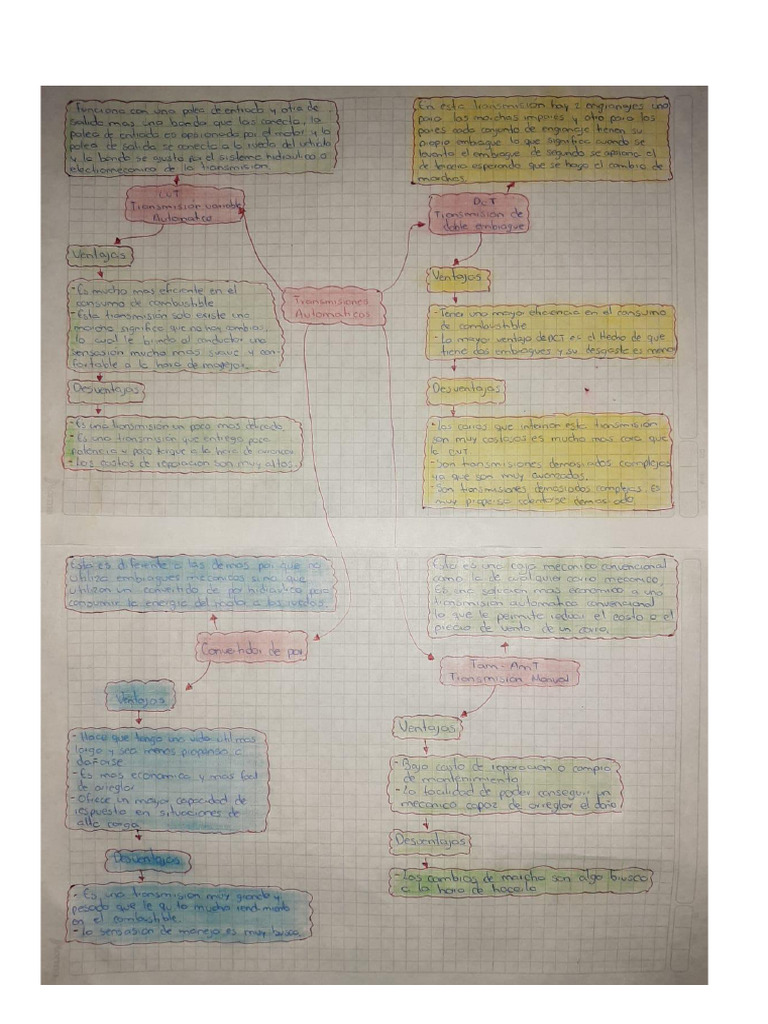 Funciona con una polea de entrada y otra de
salida mas una banda que las conecta, la
polea de entrada es apsionada por el motor, y la
polea de salida se conecta a la rueda del vehiculo
y la banda se ajusta por el sisteme hidraulico o
electromecanico de la transmisión.
CVT
Transmisión variable
Automatico
Ventajas
- Es mucho mas eficiente en el
consumo de combustible
- Esta transmisión solo existe una
marcha significa que no hay cambios,
lo cual le brinda al conductor una
sensasion mucho mas suave y con-
fortable a la hora de manejar.
Desventajas
- Es una transmisión un poco mas delicada.
- Es una transmisión que entrega poca
potencia y poco torque a la hora de
- Los costos de reparación son muy altos.
Transmisiones
Automaticas
En esta transmisión hay 2 engranajes uno
para las marchas impares y otro para los
pares cada conjunto de engranaje tienen su
propio embrague lo que significa cuando se
levanta el embrague de segundo se apsiona el
de tercera esperando que se haga el cambio de
marchas.
DCT
Transmision de
doble embrague
Ventajas
- Tener una mayor eficiencia en el consumo
de combustible
- La mayor ventaja de DCT es el Hecho de que
tiene dos embragues y su desgaste es menor
Desventajas
- Los carros que interior esta transmisión
son muy costosos es mucho mas cara que
la CVT
- Son transmisiones demasiados complejas
ya que son muy avanzadas.
- Son transmisiones demasiados complejas. Es
muy propensa
Esta es diferente a las demas por que no
utiliza embragues mecanicos si no que
utilizan un convertido de par hidraulico para
consumir la energia del motor a las ruedas.
Convertidor de par
Ventajas
- Hace que tenga una vida util mas
larga y sea menos propensa a
dañarse
- Es mas economica y mas facil
de arreglar
- Ofrece un mayor capacidad de
respuesta en situaciones de
alta carga
Desventajas
- Es una transmisión muy grande y
pesado que le quita mucho rendimiento
en el combustible.
- la sensasion de manejo es muy busca.
Esta es una caja mecanica convencional
como la de cualquier carro mecanico,
Es una solución mas economico a una
transmisión automatica convencional
lo que le permite reducir el costo o el
precio de venta de un carro.
Tam - AmT
Transmisión Manual
Ventajas
- Bajo costo de reparacion o cambio
de mantenimiento
- La facilidad de poder conseguir un
mecanico capaz de arreglar el daño
Desventajas
- Los cambios de marcha son algo brusco
a la hora de hacerlo